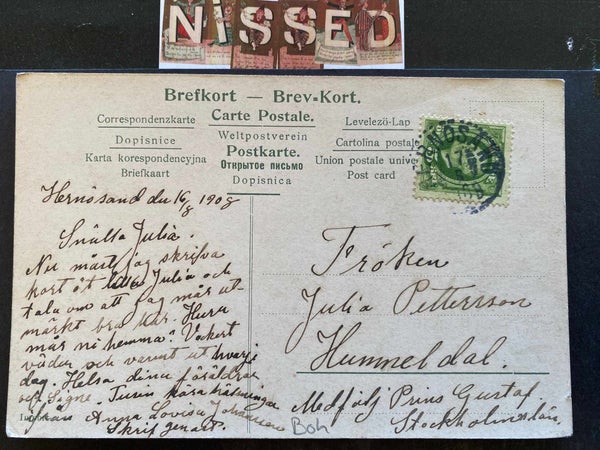 NiSSED
Brefkort — Brev-Kort.
Correspondenzkarte Carte Postale. Levelező-Lap
Dopisnice Weltpostverein Cartolina postale
Karta korespondencyjna Postkarte. Union postale unive
Briefkaart Открытое письмо Post card
Dopisnica
Hernösand du 16/8 1908
Snälla Julia.
Nu måste jag skrifva
kort åt lilla Julia och
tala om att jag mår ut-
märkt bra här. Huru
mår ni hemma? Vackert
väder och varmt ut hvarje
dag. Helsa dina föräldrar
och Signe. Tusen kära hälsningar
från Anna Lovisa Johansson
Skrif genast.
Fröken
Julia Pettersson
Hummeldal.
Medfölj Prins Gustaf
Stockholmslän
Boh